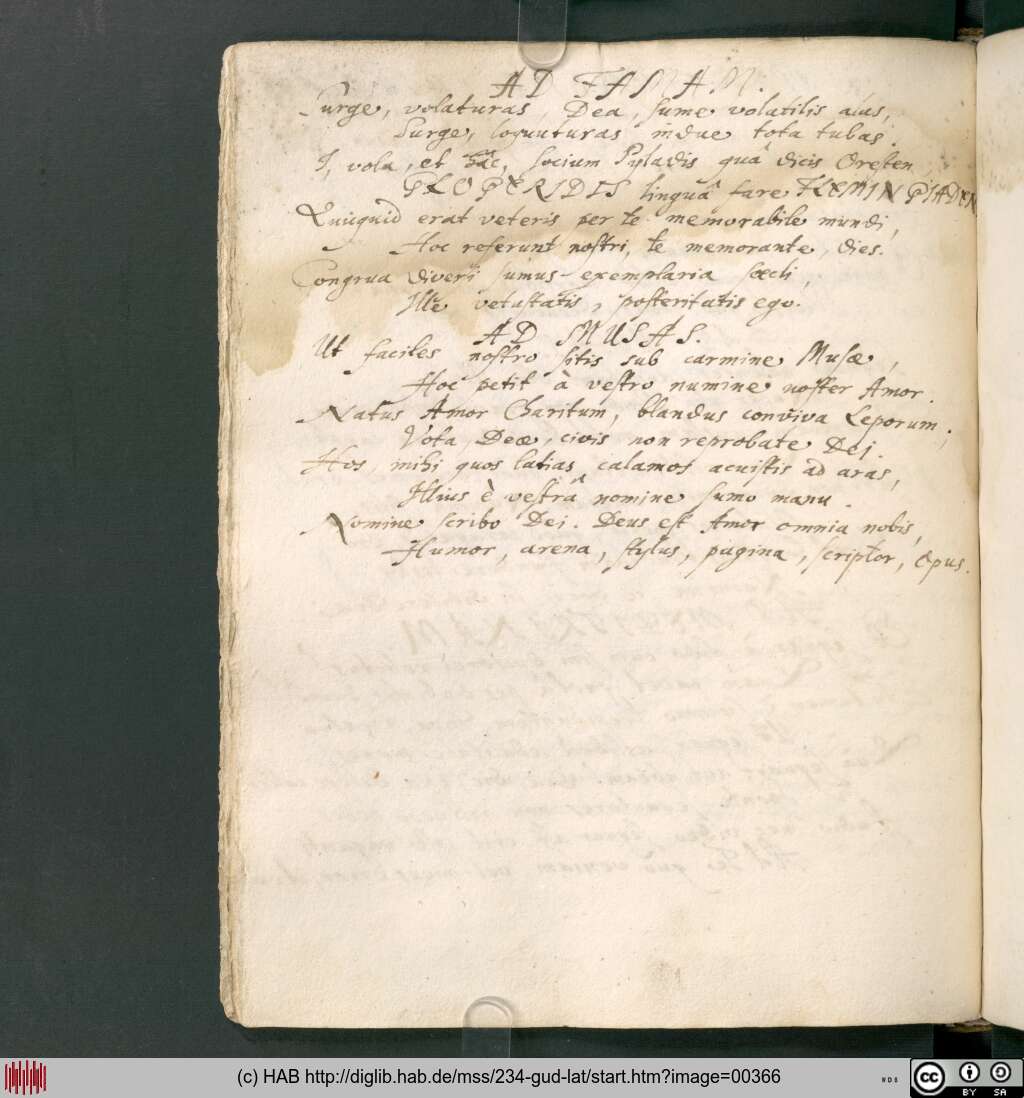 AD FAMAM.
Surge, volaturas, Dea, sume volatilis alas,
Surge, loquuturas indue tota tubas.
I, vola, et hâc, socium Pyladis quâ dicis Oresten
GLOGERIDIS linguâ fare FLEMINGIADEN
Quicquid erat veteris per te memorabile mundi,
Hoc referunt nostri, te memorante, dies.
Congrua diversi sumus exemplaria sæcli,
Ille vetustatis, posteritatis ego.
AD MUSAS.
Ut faciles nostro sitis sub carmine Musæ,
Hoc petit à vestro numine noster Amor.
Natus Amor Charitum, blandus conviva Leporum,
Vota, Deæ, civis non reprobate Dei.
Hos, mihi quos latias calamos acuistis ad aras,
Illius è vestrâ nomine sumo manu.
Nomine scribo Dei. Deus est Amor omnia nobis,
Humor, arena, stylus, pagina, scriptor, opus.
(c) HAB http://diglib.hab.de/mss/234-gud-lat/start.htm?image=00366
WDB
cc
BY SA